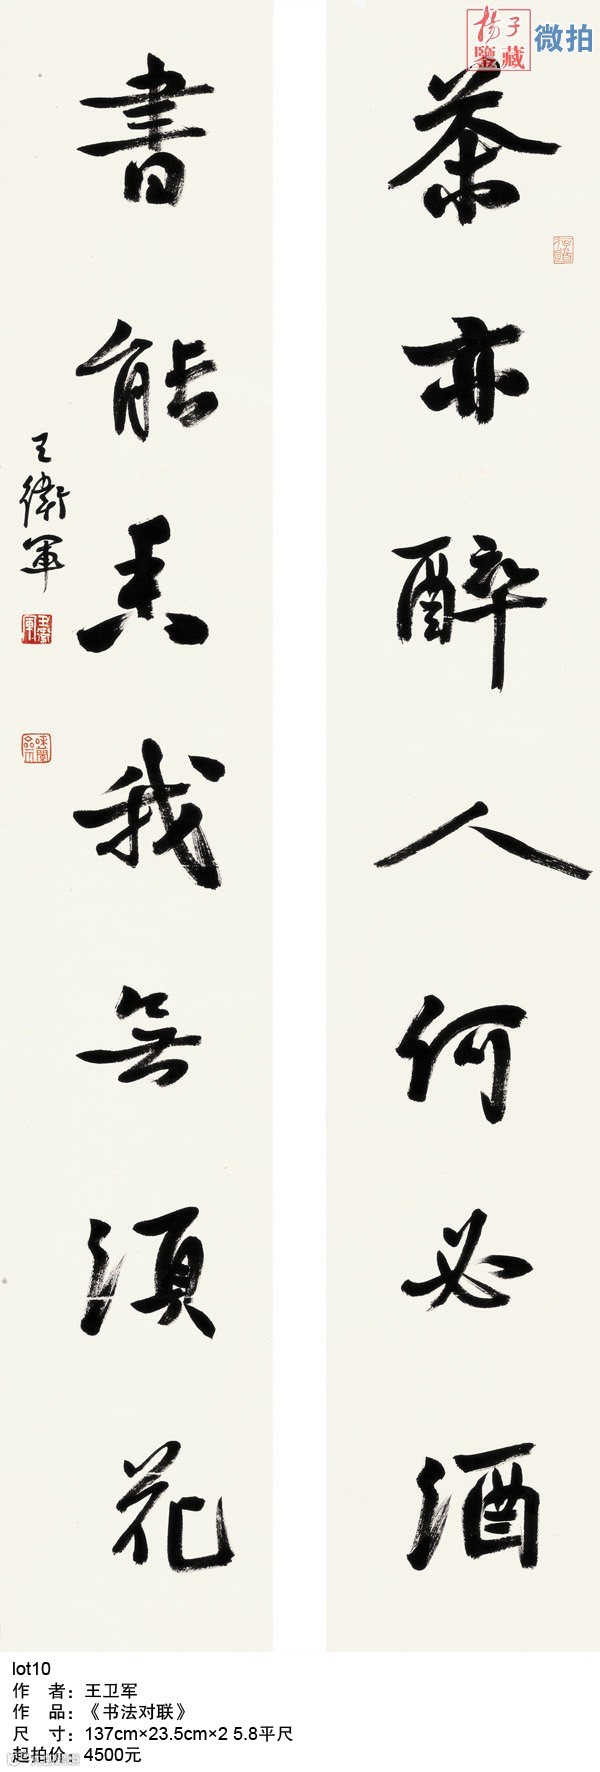 揚子
鑒藏
微拍
茶亦醉人何必酒
書能香我無須花
王衛軍
lot10
作 者：王卫军
作 品：《书法对联》
尺 寸：137cm×23.5cm×2 5.8平尺
起拍价：4500元